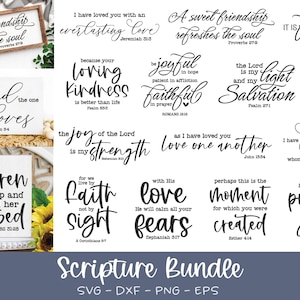 I have loved you with an
everlasting love
Jeremiah 31:3
A sweet friendship
refreshes the soul
Proverbs 27:9
sweet friendship
the soul
because your
loving
kindness
is better than life
Psalm 63:3
be joyful in hope
patient in affliction
faithful
in prayer
ROMANS 12:12
the Lord
is my light
and my
Salvation
Psalm 27:1
the one
loves
the joy of the Lord
is my strength
as I have loved you
love one another
John 13:34
for we
live by
faith
not by
sight
2 Corinthians 5:7
with His
love
He will calm all your
fears
Zephaniah 3:17
perhaps this is the
moment
for which you were
created
Esther 4:14
Scripture Bundle
SVG - DXF - PNG - EPS